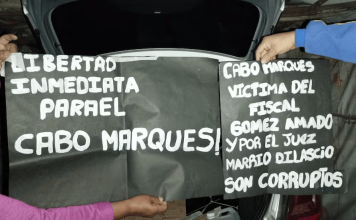 LIBERTAD
INMEDIATA
PARAEL
CABO MARQUES!
CABO MARQUES
VICTIMA DEL
FISCAL
GOMEZ AMADO
Y POR EL JUEZ
MARRIO DILASCIO
SON CORRUPTOS